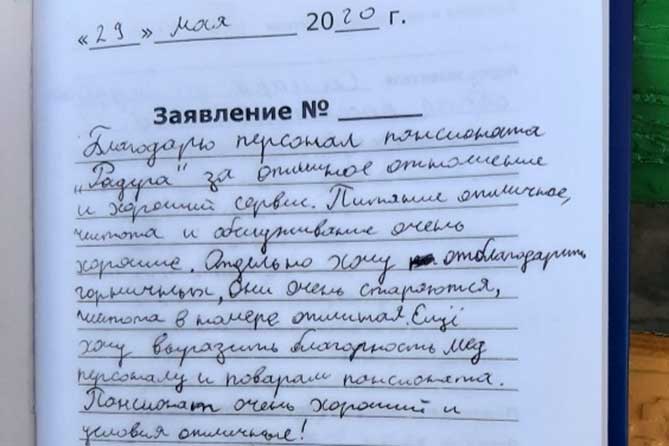 « 29 » мая 2020 г.
Заявление № ______
Благодарю персонал пансионата
„Радуга" за отличное отношение
и хороший сервис. Питание отличное,
чистота и обслуживание очень
хорошие. Отдельно хочу отблагодарить
горничных, они очень стараются,
чистота в номере отличная. Ещё
хочу выразить благорность мед
персоналу и поварам пансионата.
Пансионат очень хороший и
условия отличные!